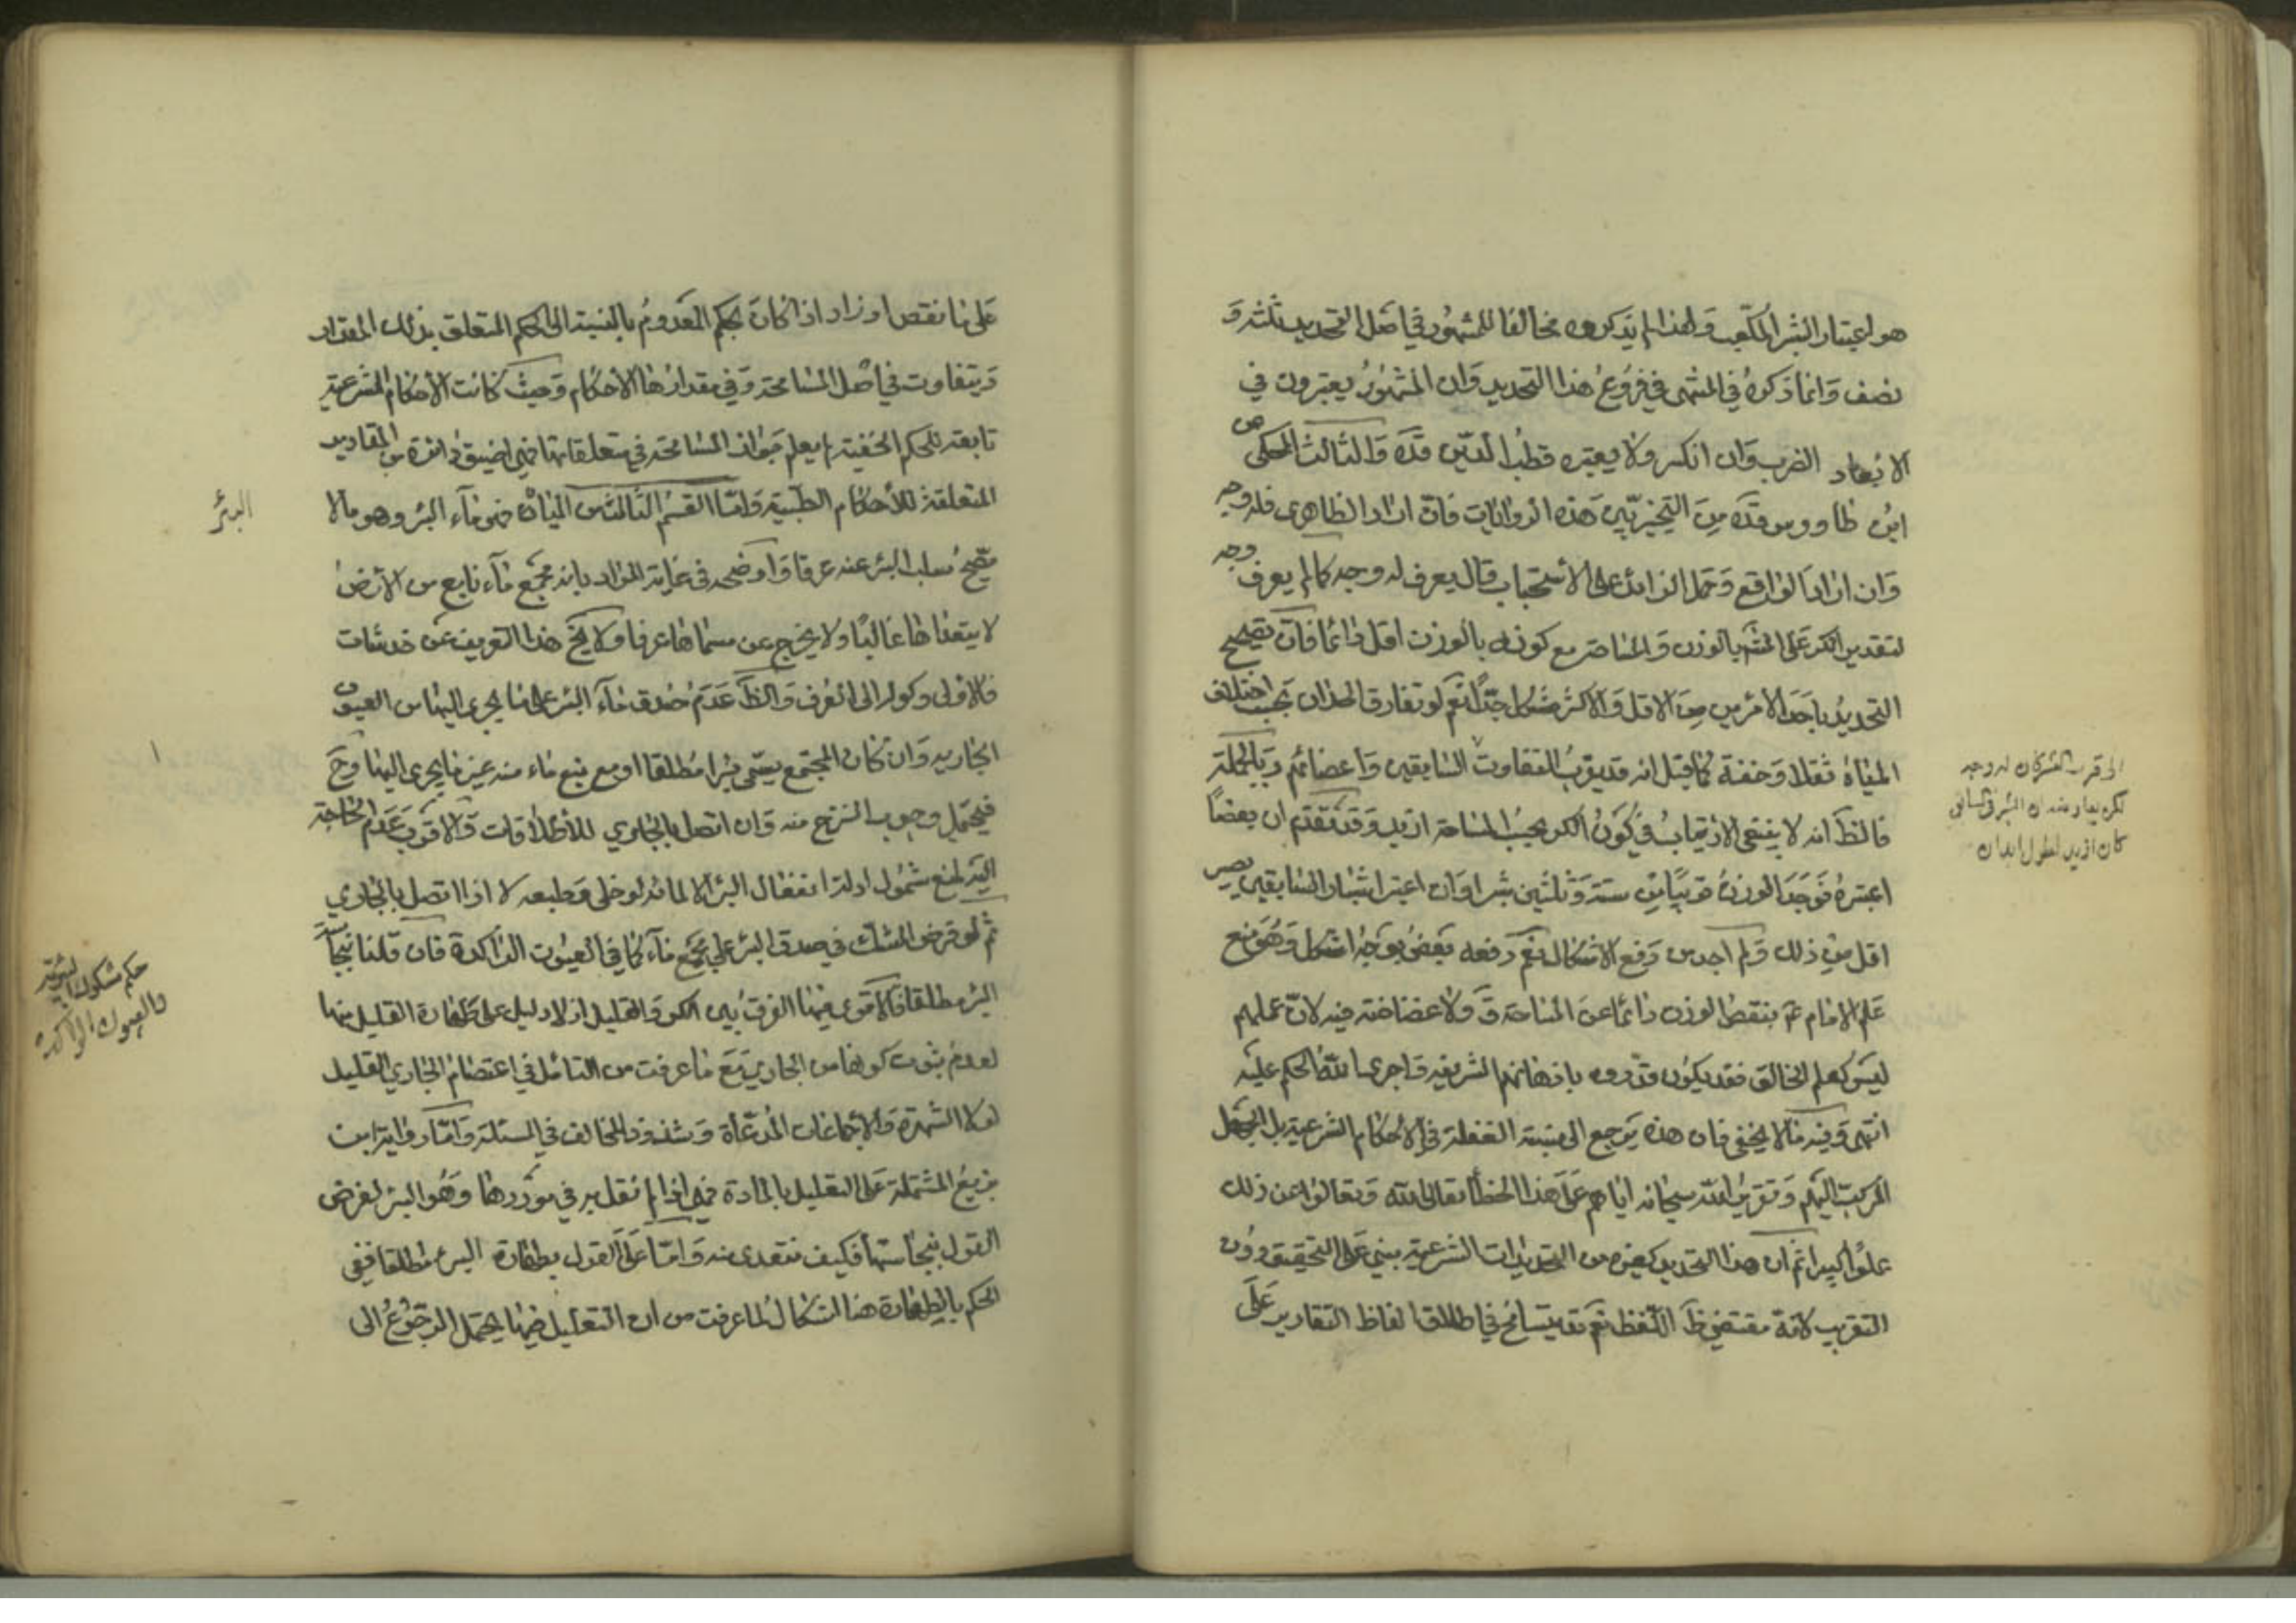 هو اعتبار الشبر المكعب ولهذا لم يذكروه مخالفا للمشهور في اصل التحديد بثلثة و
نصف وانما ذكروه في المنتهى في فروع هذا التحديد وان المشهور يعتبرون في
الابعاد الضرب وان انكر ولا يعتبره قطب الدين قده والثالث المحكي عن
ابن طاووس قده من التخيير بين هذه الروايات فان اراد الظاهري فله وجه
وان اراد الواقع وحمل الزائد على الاستحباب قال يعرف له وجه كما لم يعرف وجه
لتقدير الكر على المشهور بالوزن والمساحة مع كونه بالوزن اقل دائما فان تصحيح
التحديد باحد الامرين من الاقل والاكثر مشكل جدا نعم لو تفارق الحدان بحسب اختلاف
المياه ثقلا وخفة كما قيل انه قد يقرب التفاوت السابقين واعضائهم وبالجملة
فالظ انه لا ينبغي الارتياب في كون الكر بحسب المساحة ازيد وقد تقدم ان بعضا
اعتبره فوجد الوزن قريبا من ستة وثلثين شبرا وان اعتبر اشبار السابقين يصير
اقل من ذلك ولم اجد من رفع الاشكال نعم رفعه بعض بوجه اشكل وهو منع
علم الامام ع بنقص الوزن دائما عن المساحة ق ولا غضاضة فيه لان علمهم
ليس كعلم الخالق فقد يكون قدروه باذهانهم الشريفة واجرى الله الحكم عليه
انتهى وفيه ما لا يخفى فان هذه يرجع الى نسبة الغفلة في الاحكام الشرعية بل الجهل
المركب اليهم وتقرير الله سبحانه اياهم على هذا الخطأ تعالى الله وتعالوا عن ذلك
علوا كبيرا ثم ان هذا التحديد كغيره من التحديدات الشرعية مبني على التحقيق دون
التقريب لانه مقتضى ظ اللفظ نعم قد يتسامح في اطلاق الفاظ التقادير على
لكن يعارضه ان الشبر في السابق
كان ازيد لطول ابدان
على ما نقص او زاد اذا كان بحكم المعدوم بالنسبة الى الحكم المتعلق بذلك المقدار
ويتفاوت في اصل المسامحة وفي مقدارها الاحكام وحيث كانت الاحكام الشرعية
تابعة للحكم الخفية لم يعلم جواز المسامحة في متعلقاتها فهي اضيق دائرة من المقادير
المتعلقة للاحكام الطبية واما القسم الثالث من المياه فهو ماء البئر وهو ما لا
يصح سلب البئر عنه عرفا واوضحه في غاية المراد بانه مجمع ماء نابع من الارض
لا يتعداها غالبا ولا يخرج عن مسماها عرفا ولا يخ هذا التعريف عن خدشات
فالاولى وكوله الى العرف والظ عدم صدق ماء البئر على ما يجري اليها من العيون
الجارية وان كان المجتمع يسمى بئرا مطلقا او مع نبع ماء منه غير ما يجري اليها وح
فيحتمل وجوب النزح منه وان اتصل بالجاري للاطلاقات والاقوى عدم الحاجة
اليه لمنع شمول ادلة انفعال البئر الا لما لو خلي وطبعه لا اذا اتصل بالجاري
ثم لو فرض الشك في صدق البئر على مجمع ماء كما في العيون الراكدة فان قلنا بنجاسة
البئر مطلقا فالاقوى فيها الفرق بين الكر والقليل اذ لا دليل على طهارة القليل منها
لعدم ثبوت كونها من الجاري مع ما عرفت من التأمل في اعتصام الجاري القليل
لولا الشهرة والاجماعات المدعاة وشذوذ المخالف في المسئلة واما رواية ابن
بزيع المشتملة على التعليل بالمادة فهي اذا لم نقل به في موردها وهو البئر لفرض
القول بنجاستها فكيف نتعدى منه واما على القول بطهارة البئر مطلقا ففي
الحكم بالطهارة هنا اشكال لما عرفت من ان التعليل فيها يحتمل الرجوع الى
البئر
حكم مشكوك البئرية
والعيون الراكدة